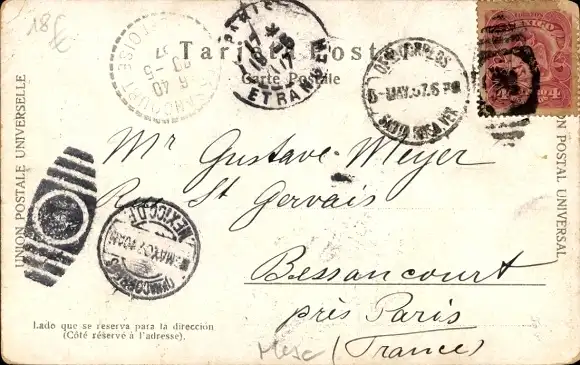 18 f
Tarjeta Postal
Carte Postale
PARIS
ETRANGER
UNION POSTALE UNIVERSELLE
UNION POSTAL UNIVERSAL
Mr Gustave Meyer
Rue St Gervais
Bessancourt
près Paris
(France)
MEXICO D.F.
Lado que se reserva para la dirección
(Côté réservé à l'adresse).